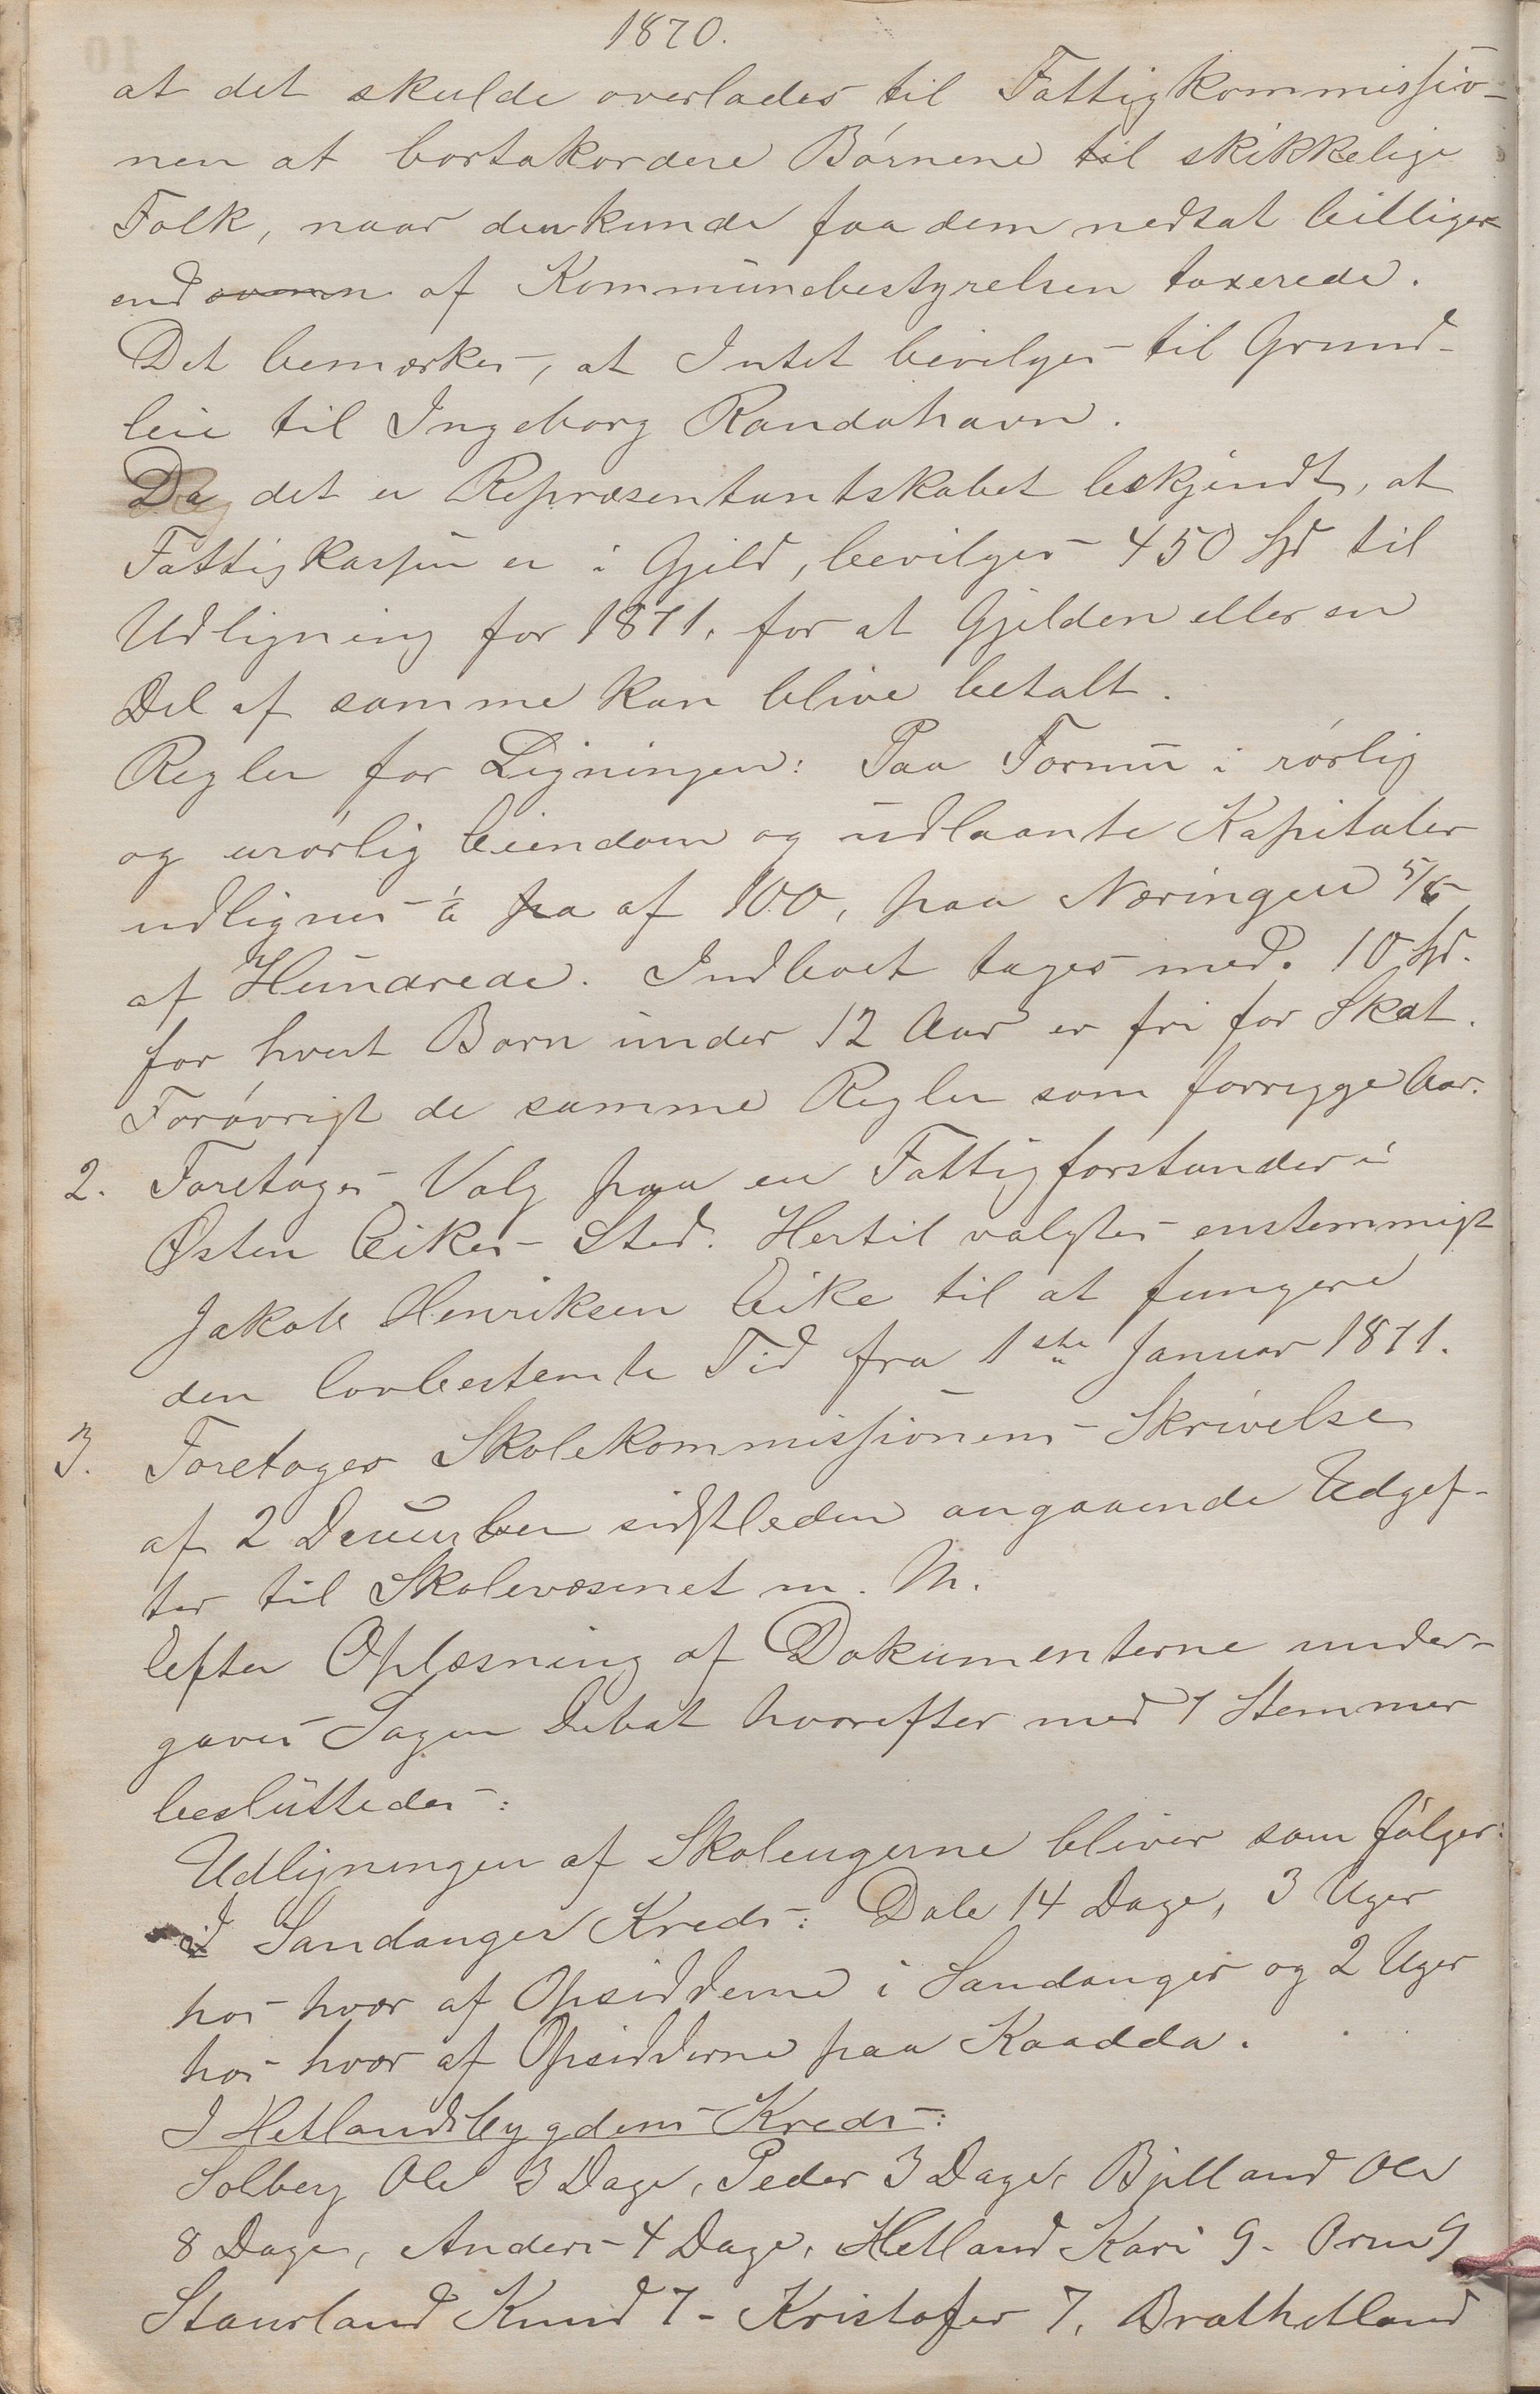 1870.
at det skulde overlades til Fattigkommissio-
nen at bortakordere Børnene til skikkelige
Folk, naar den kunde faa dem nedsat billiger
end af Kommunebestyrelsen taxerede.
Det bemærkes, at Intet bevilges til Grund-
leie til Ingeborg Randahavn.
Da det er Repræsentantskabet beskjendt, at
Fattigkassen er i Gjeld, bevilges 450 Spd til
Udligning for 1871. for at Gjelden eller en
Del af samme kan blive betalt.
Regler for Ligningen: Paa Formue i rørlig
og urørlig Eiendom og udlaante Kapitaler
udlignes af 100, paa Næringen
af Hundrede. Indboet tages med. 10 Spd.
for hvert Barn under 12 Aar er fri for Skat.
Forøvrigt de samme Regler som forrygge Aar.
2. Foretages Valg paa en Fattigforstander i
Østen Eikes Sted. Hertil valgtes enstemmigt
Jakob Henriksen Eike til at fungere
den lovbestemte Tid fra 1ste Januar 1871.
3. Foretages Skolekommissionens Skrivelse
af 2 December sidstleden angaaende Udgif-
ter til Skolevæsenet m. M.
Efter Oplæsning af Dokumenterne under-
gaves Sagen Debat hvorefter med 7 Stemmer
besluttedes:
Udligningen af Skoleugerne bliver som følger:
I Sandanger Kreds: Dale 14 Dage, 3 Uger
hos hver af Opsidderne i Sandanger og 2 Uger
hos hver af Opsidderne paa Kaadda.
I Hetlandsbygdens Kreds:
Solberg Ole 3 Dage, Peder 3 Dage, Bjelland Ole
8 Dage, Anders 4 Dage, Hetland Kari 9- Orm 9
Staurland Knud 7- Kristofer 7, Brathetland